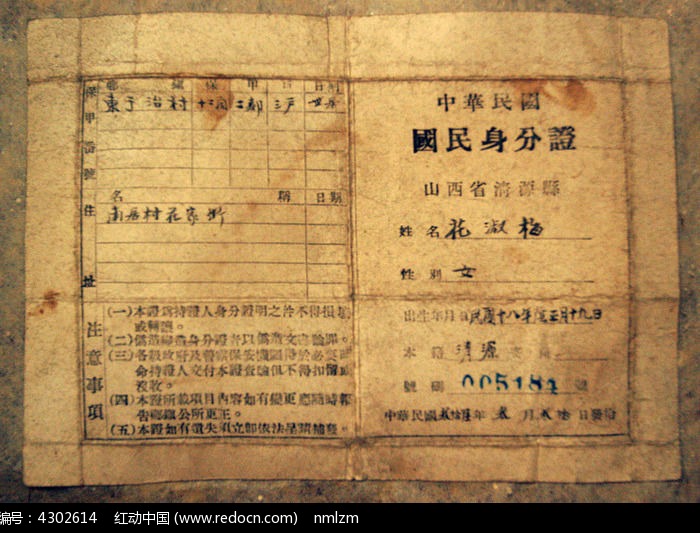 中華民國
國民身分證
山西省清源縣
姓名 花淑梅
性別 女
出生年月日 民國十八年 正月十九日
本籍 清源
號碼 005184 號
中華民國 年 月 日發給
保甲番號
鄉 鎮 保 甲 戶 日期
東于治村
住址
名 稱 日期
南居村花家街
注意事項
(一)本證為持證人身分證明之件不得損壞
或轉讓。
(二)偽造
(三)各級政府及警察保安機關得於必要時
命持證人交付本證查驗但不得扣留或
沒收。
(四)本證所載項目內容如有變更應隨時報
告鄉鎮公所更正。
(五)本證如有遺失須立即依法呈請補發。
编号：4302614 红动中国 (www.redocn.com) nmlzm